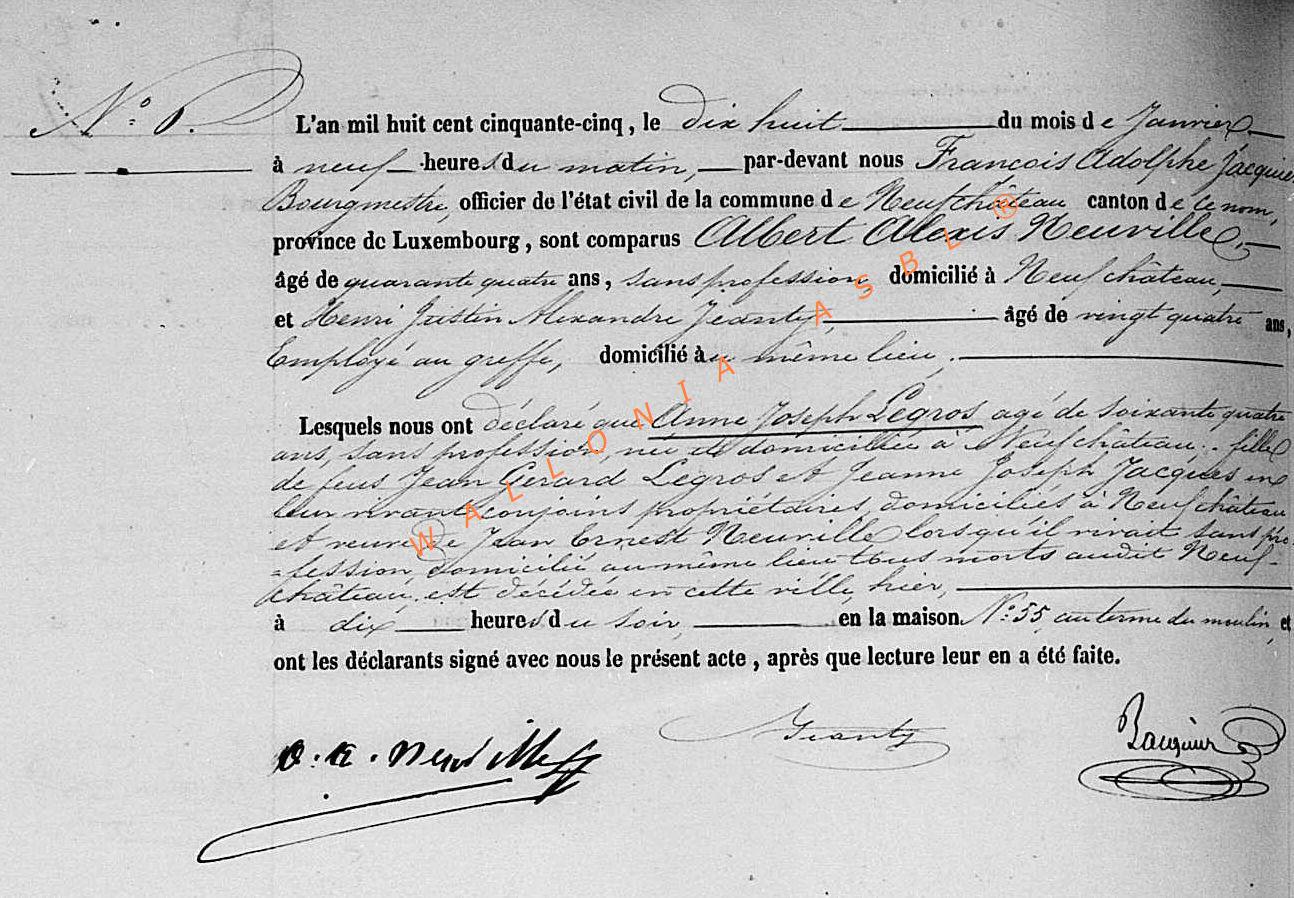 N.° 6.
L'an mil huit cent cinquante-cinq, le dix huit du mois de Janvier
à neuf heures du matin, par-devant nous François Adolphe Jacquier
Bourgmestre, officier de l'état civil de la commune de Neufchâteau canton de ce nom,
province de Luxembourg, sont comparus Albert Alexis Neuville,
âgé de quarante quatre ans, sans profession, domicilié à Neufchâteau,
et Henri Justin Alexandre Jeanty, âgé de vingt quatre ans,
Employé au greffe, domicilié au même lieu,
Lesquels nous ont déclaré que Anne Joseph Legros agé de soixante quatre
ans, sans profession, née et domiciliée à Neufchâteau, fille
de feus Jean Gerard Legros et Jeanne Joseph Jacques en
leur vivant conjoins propriétaires, domiciliés à Neufchâteau
et veuve de Jean Ernest Neuville lorsqu'il vivait sans pro-
=fession, domicilié au même lieu tous morts audit Neuf-
château, est décédée en cette ville, hier,
à dix heures du soir, en la maison N.° 55, au terme du moulin, et
ont les déclarants signé avec nous le présent acte, après que lecture leur en a été faite.
a. a. Neuville Jeanty
WALLONIA ASBL ®